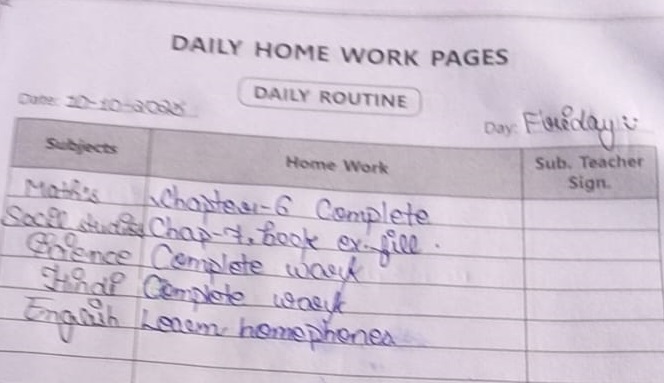 DAILY HOME WORK PAGES
DAILY ROUTINE
Date: 10-10-2025
Day: Friday
Subjects Home Work Sub. Teacher Sign.
Maths Chapter-6 Complete
Social studies Chap-7, book ex-fill.
Science Complete work
Hindi Complete work
English Learn homephones